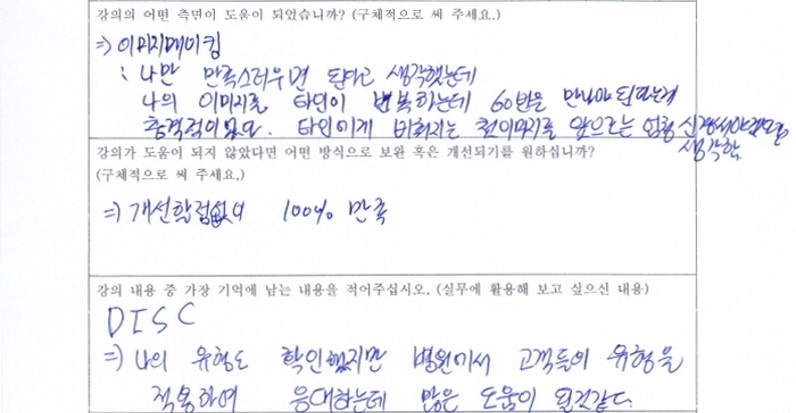 강의의 어떤 측면이 도움이 되었습니까? (구체적으로 써 주세요.)
⇒ 이미지메이킹
: 나만 만족스러우면 된다고 생각했는데
나의 이미지를 타인이 번복하는데 60번은 만나야 된다는게
충격적이었다. 타인에게 비춰지는 첫이미지를 앞으로는 엄청 신경써야겠다고
생각함.
강의가 도움이 되지 않았다면 어떤 방식으로 보완 혹은 개선되기를 원하십니까?
(구체적으로 써 주세요.)
⇒ 개선할점없음 100% 만족
강의 내용 중 가장 기억에 남는 내용을 적어주십시오. (실무에 활용해 보고 싶으신 내용)
DISC
⇒ 나의 유형도 확인했지만 병원에서 고객들의 유형을
적용하여 응대하는데 많은 도움이 될것같다.